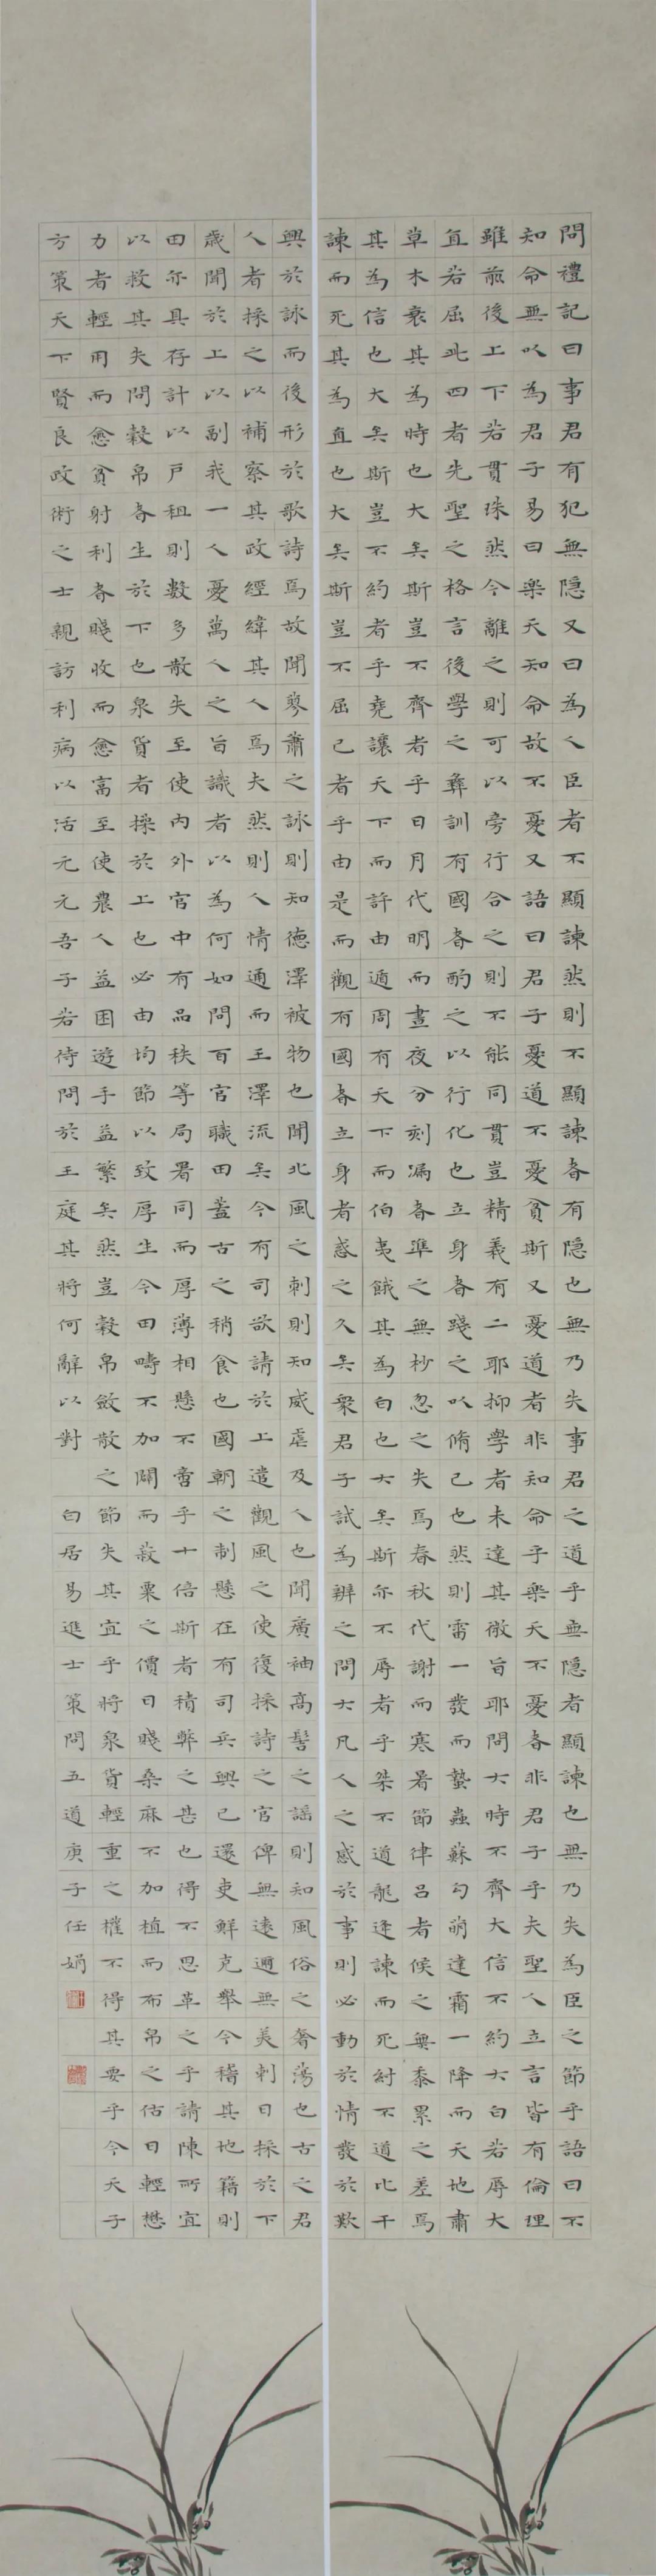 問禮記曰事君有犯無隱又曰為人臣者不顯諫然則不顯諫者有隱也無乃失事君之道乎無隱者顯諫也無乃失為臣之節乎語曰不
知命無以為君子易曰樂天知命故不憂又語曰君子憂道不憂貧斯又憂道者非知命乎樂天不憂者非君子乎夫聖人立言皆有倫理
雖前後上下若貫珠然今離之則可以旁行合之則不能同貫豈精義有二耶抑學者未達其微旨耶問大時不齊大信不約大白若辱大
直若屈此四者先聖之格言後學之彝訓有國者酌之以行化也立身者踐之以脩己也然則雷一發而蟄蟲蘇勾萌達霜一降而天地肅
草木衰其為時也大矣斯豈不齊者乎日月代明而晝夜分刻漏者準之無杪忽之失焉春秋代謝而寒暑節律呂者候之無黍累之差焉
其為信也大矣斯豈不約者乎堯讓天下而許由適周有天下而伯夷餓其為白也大矣斯亦不辱者乎桀不道龍逄諫而死紂不道比干
諫而死其為直也大矣斯豈不屈己者乎由是而觀有國者立身者惑之久矣衆君子試為辨之問大凡人之感於事則必動於情發於歎
興於詠而後形於歌詩焉故聞蓼蕭之詠則知德澤被物也聞北風之刺則知威虐及人也聞廣袖高髻之謠則知風俗之奢蕩也古之君
人者採之以補察其政經緯其人焉夫然則人情通而王澤流矣今有司欲請於上遣觀風之使復採詩之官俾無遠邇無美刺日採於下
歲聞於上以副我一人憂萬人之旨識者以為何如問百官職田蓋古之稍食也國朝之制懸在有司兵興已還吏鮮克舉今稽其地籍則
田亦具存計以戶租則數多散失至使內外官中有品秩等局署同而厚薄相懸不啻乎十倍斯者積弊之甚也得不思革之乎請陳所宜
以救其失問穀帛者生於下也泉貨者操於上也必由均節以致厚生今田疇不加闢而菽粟之價日賤桑麻不加植而布帛之估日輕懋
力者輕用而愈貧射利者賤收而愈富至使農人益困遊手益繁矣然豈穀帛斂散之節失其宜乎將泉貨輕重之權不得其要乎今天子
方策天下賢良政術之士親訪利病以活元元吾子若待問於王庭其將何辭以對 白居易進士策問五道庚子任娟